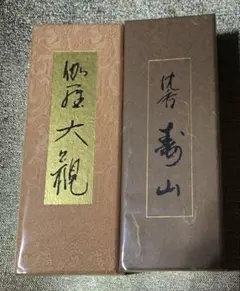 伽羅
大観
沈香
寿山